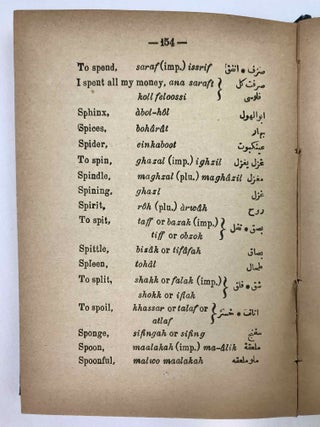 —154—
To spend, saraf (imp.) issrif صرف • انفق
I spent all my money, ana saraft } صرفت كل
koll feloossi فلوسى
Sphinx, àbol-hôl ابوالهول
Spices, bohârât بهار
Spider, einkaboot عينكبوت
To spin, ghazal (imp.) ighzil غزل يغزل
Spindle, maghzal (plu.) maghâzil مغزل
Spining, ghazl غزل
Spirit, rôh (plu.) àrwâh روح
To spit, taff or bazak (imp.) } بصق • تفل
tiff or obzok
Spittle, bizâk or tifâfah بصاق
Spleen, tohâl طحال
To split, shakk or falak (imp.) } شق • فلق
shokk or iflak
To spoil, khassar or talaf or } اتلف • خسّر
atlaf
Sponge, sifingah or sifing سفنج
Spoon, maalakah (imp.) ma-âlik ملعقة
Spoonful, malwo maalakah ملو ملعقه